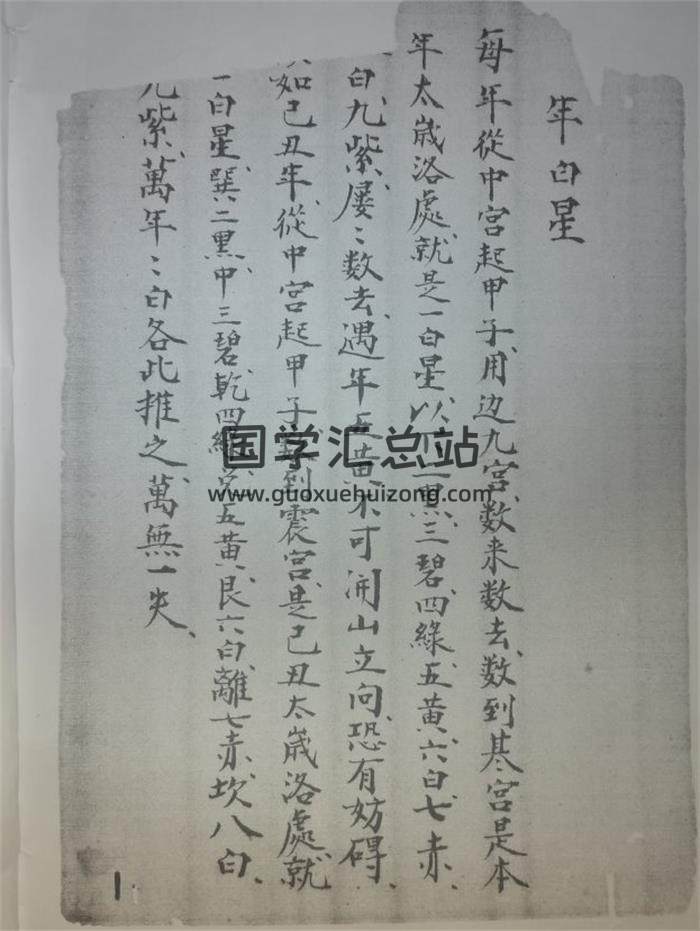 年白星
每年從中宮起甲子用边九宮数来数去数到某宮是本
年太歲洛處就是一白星以 二黑三碧四綠五黄六白七赤
白九紫屡〻数去遇年五黄不可開山立向恐有妨碍
如己丑年從中宮起甲子 到震宮是己丑太歲洛處就
一白星巽二黑中三碧乾四綠 五黄艮六白離七赤坎八白
九紫萬年〻白各此推之萬無一失
国学汇总站
www.guoxuehuizong.com
1